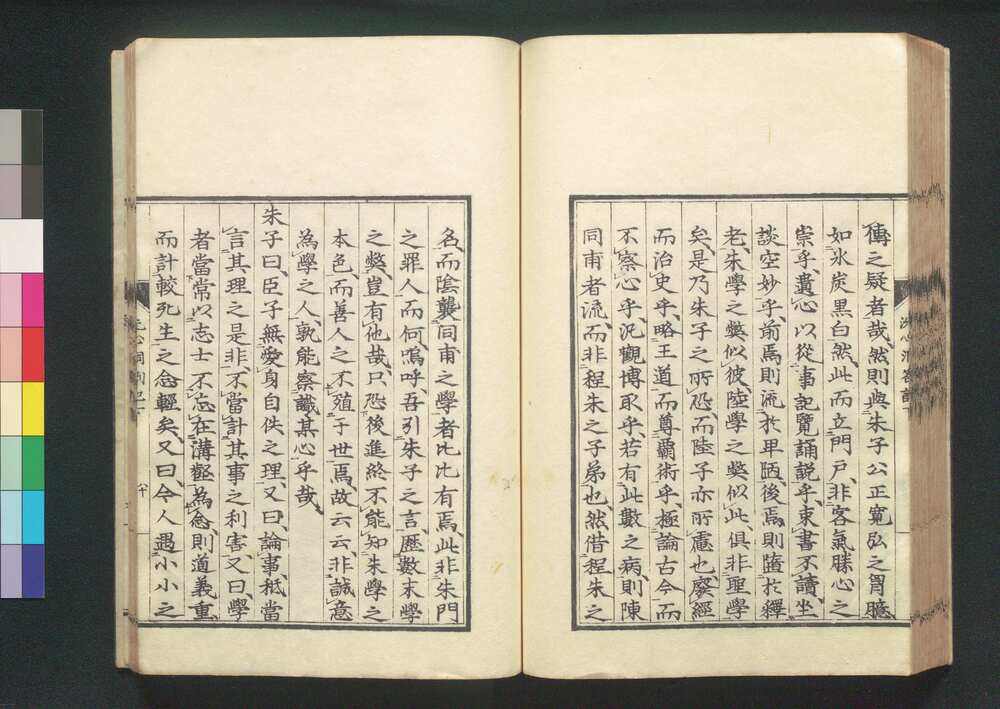 傳之疑者哉、然則與朱子公正寬弘之胷臆、
如氷炭黑白然、此而立門戸、非客氣勝心之
崇乎、遺心以從事記覽誦説乎、束書不讀、坐
談空妙乎、前焉則流於卑陋、後焉則墮於釋
老、朱學之獘似彼、陸學之獘似此、俱非聖學
矣、是乃朱子之所恐、而陸子亦所慮也、廢經
而治史乎、略王道而尊覇術乎、極論古今而
不察心乎、汎觀博取乎、若有此數之病、則陳
同甫者流、而非程朱之子弟也、然借程朱之
名、而陰襲同甫之學者比比有焉、此非朱門
之罪人而何、嗚呼、吾引朱子之言、歴數末學
之獘、豈有他哉、只恐後進終不能知朱學之
本色、而善人之不殖于世焉、故云云、非誠意
為學之人、孰能察識其心乎哉、
朱子曰、臣子無愛身自佚之理、又曰、論事秖當
言其理之是非、不當計其事之利害、又曰、學
者當常以志士不忘在溝壑為念、則道義重、
而計較死生之念輕矣、又曰、今人遇小小之